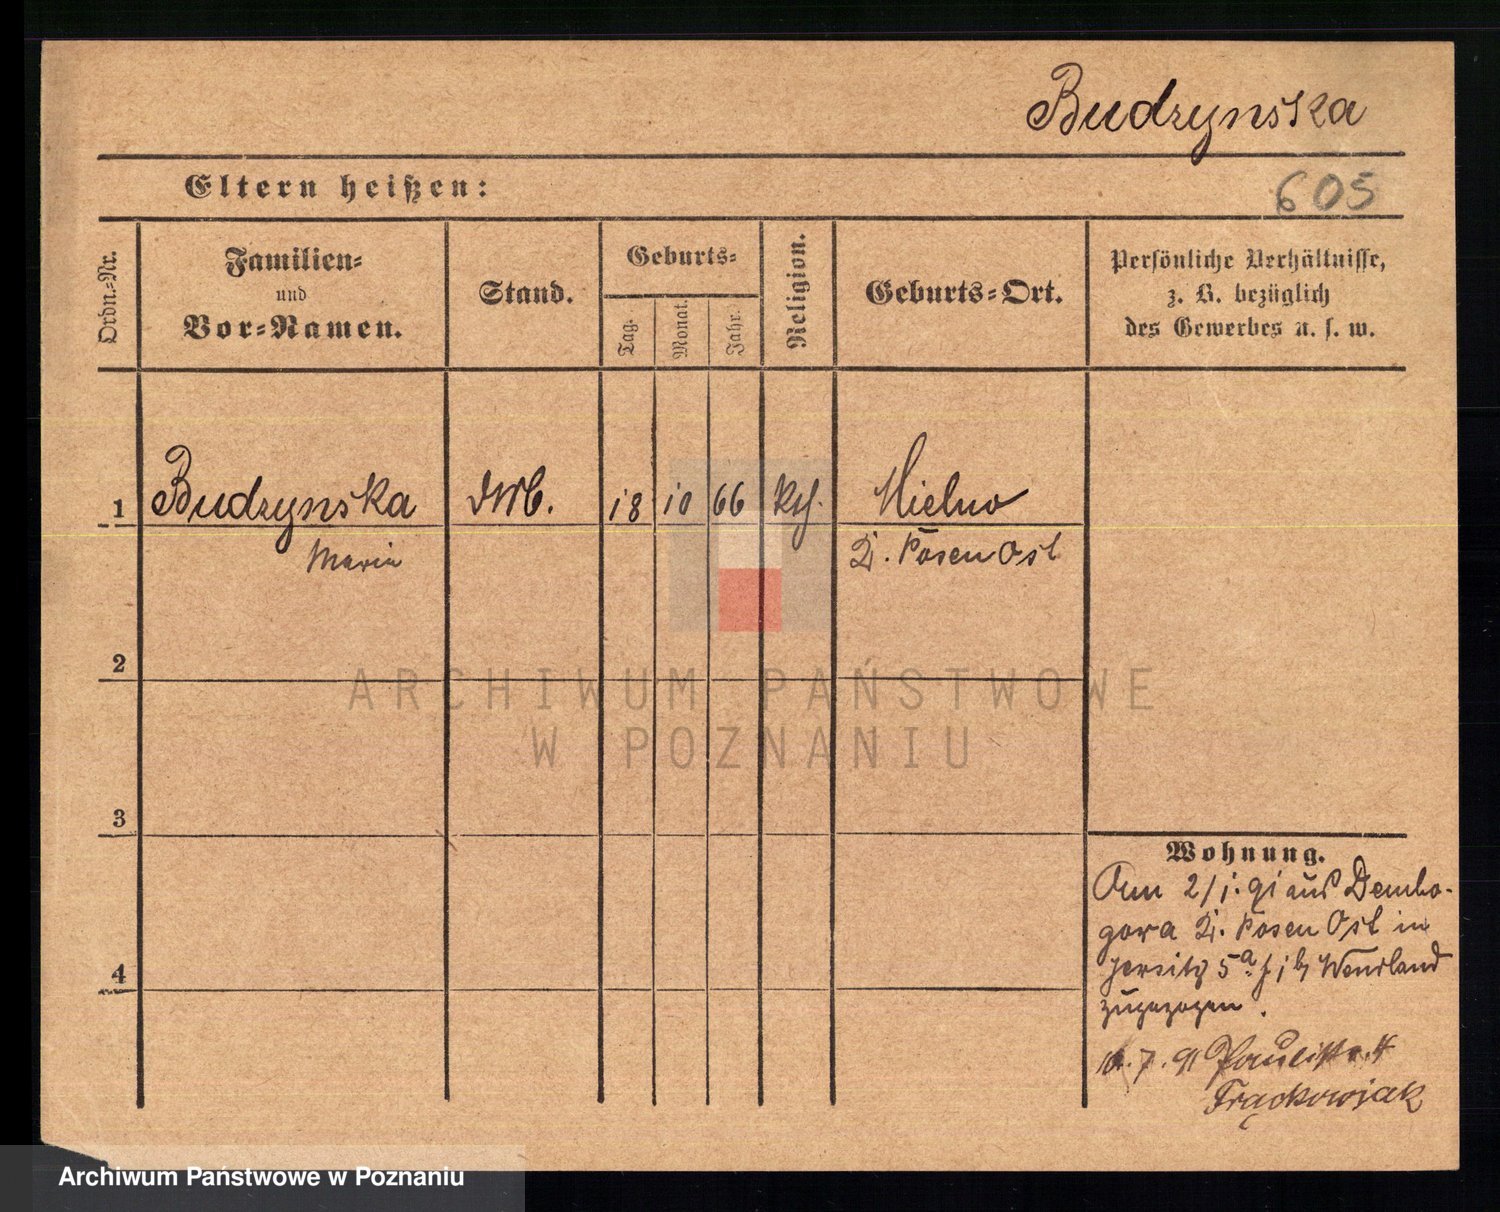 Budzynska
Eltern heißen:
605
Ordn.-Nr.
Familien-
und
Vor-Namen.
Stand.
Geburts-
Tag.
Monat.
Jahr.
Religion.
Geburts-Ort.
Persönliche Verhältnisse,
z. B. bezüglich
des Gewerbes u. s. w.
1
Budzynska
18
10
66
kth.
Mielno
Maria
Posen Ost
2
ARCHIWUM PAŃSTWOWE
W POZNANIU
3
Wohnung.
Am 2/1. 91 aus Dembo-
gora Posen Ost in
Jersitz 5a Wendland
zugezogen.
7. 91 Paulistr. 4
Frąckowiak
4
Archiwum Państwowe w Poznaniu